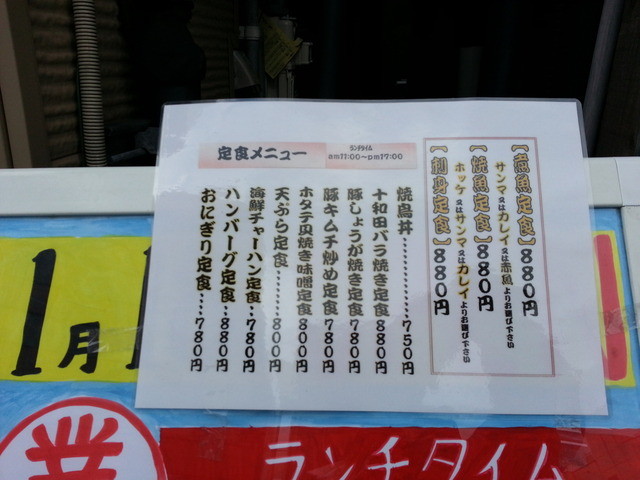 定食メニュー
ランチタイム
am11:00~pm17:00
【煮魚定食】880円
サンマ又はカレイ又は赤魚よりお選び下さい
【焼魚定食】880円
ホッケ又はサンマ又はカレイよりお選び下さい
【刺身定食】880円
焼鳥丼………750円
十和田バラ焼き定食 880円
豚しょうが焼き定食 780円
豚キムチ炒め定食 780円
ホタテ貝焼き味噌定食 800円
天ぷら定食………800円
海鮮チャーハン定食…780円
ハンバーグ定食…880円
おにぎり定食……780円
1月1
業
ランチタイム